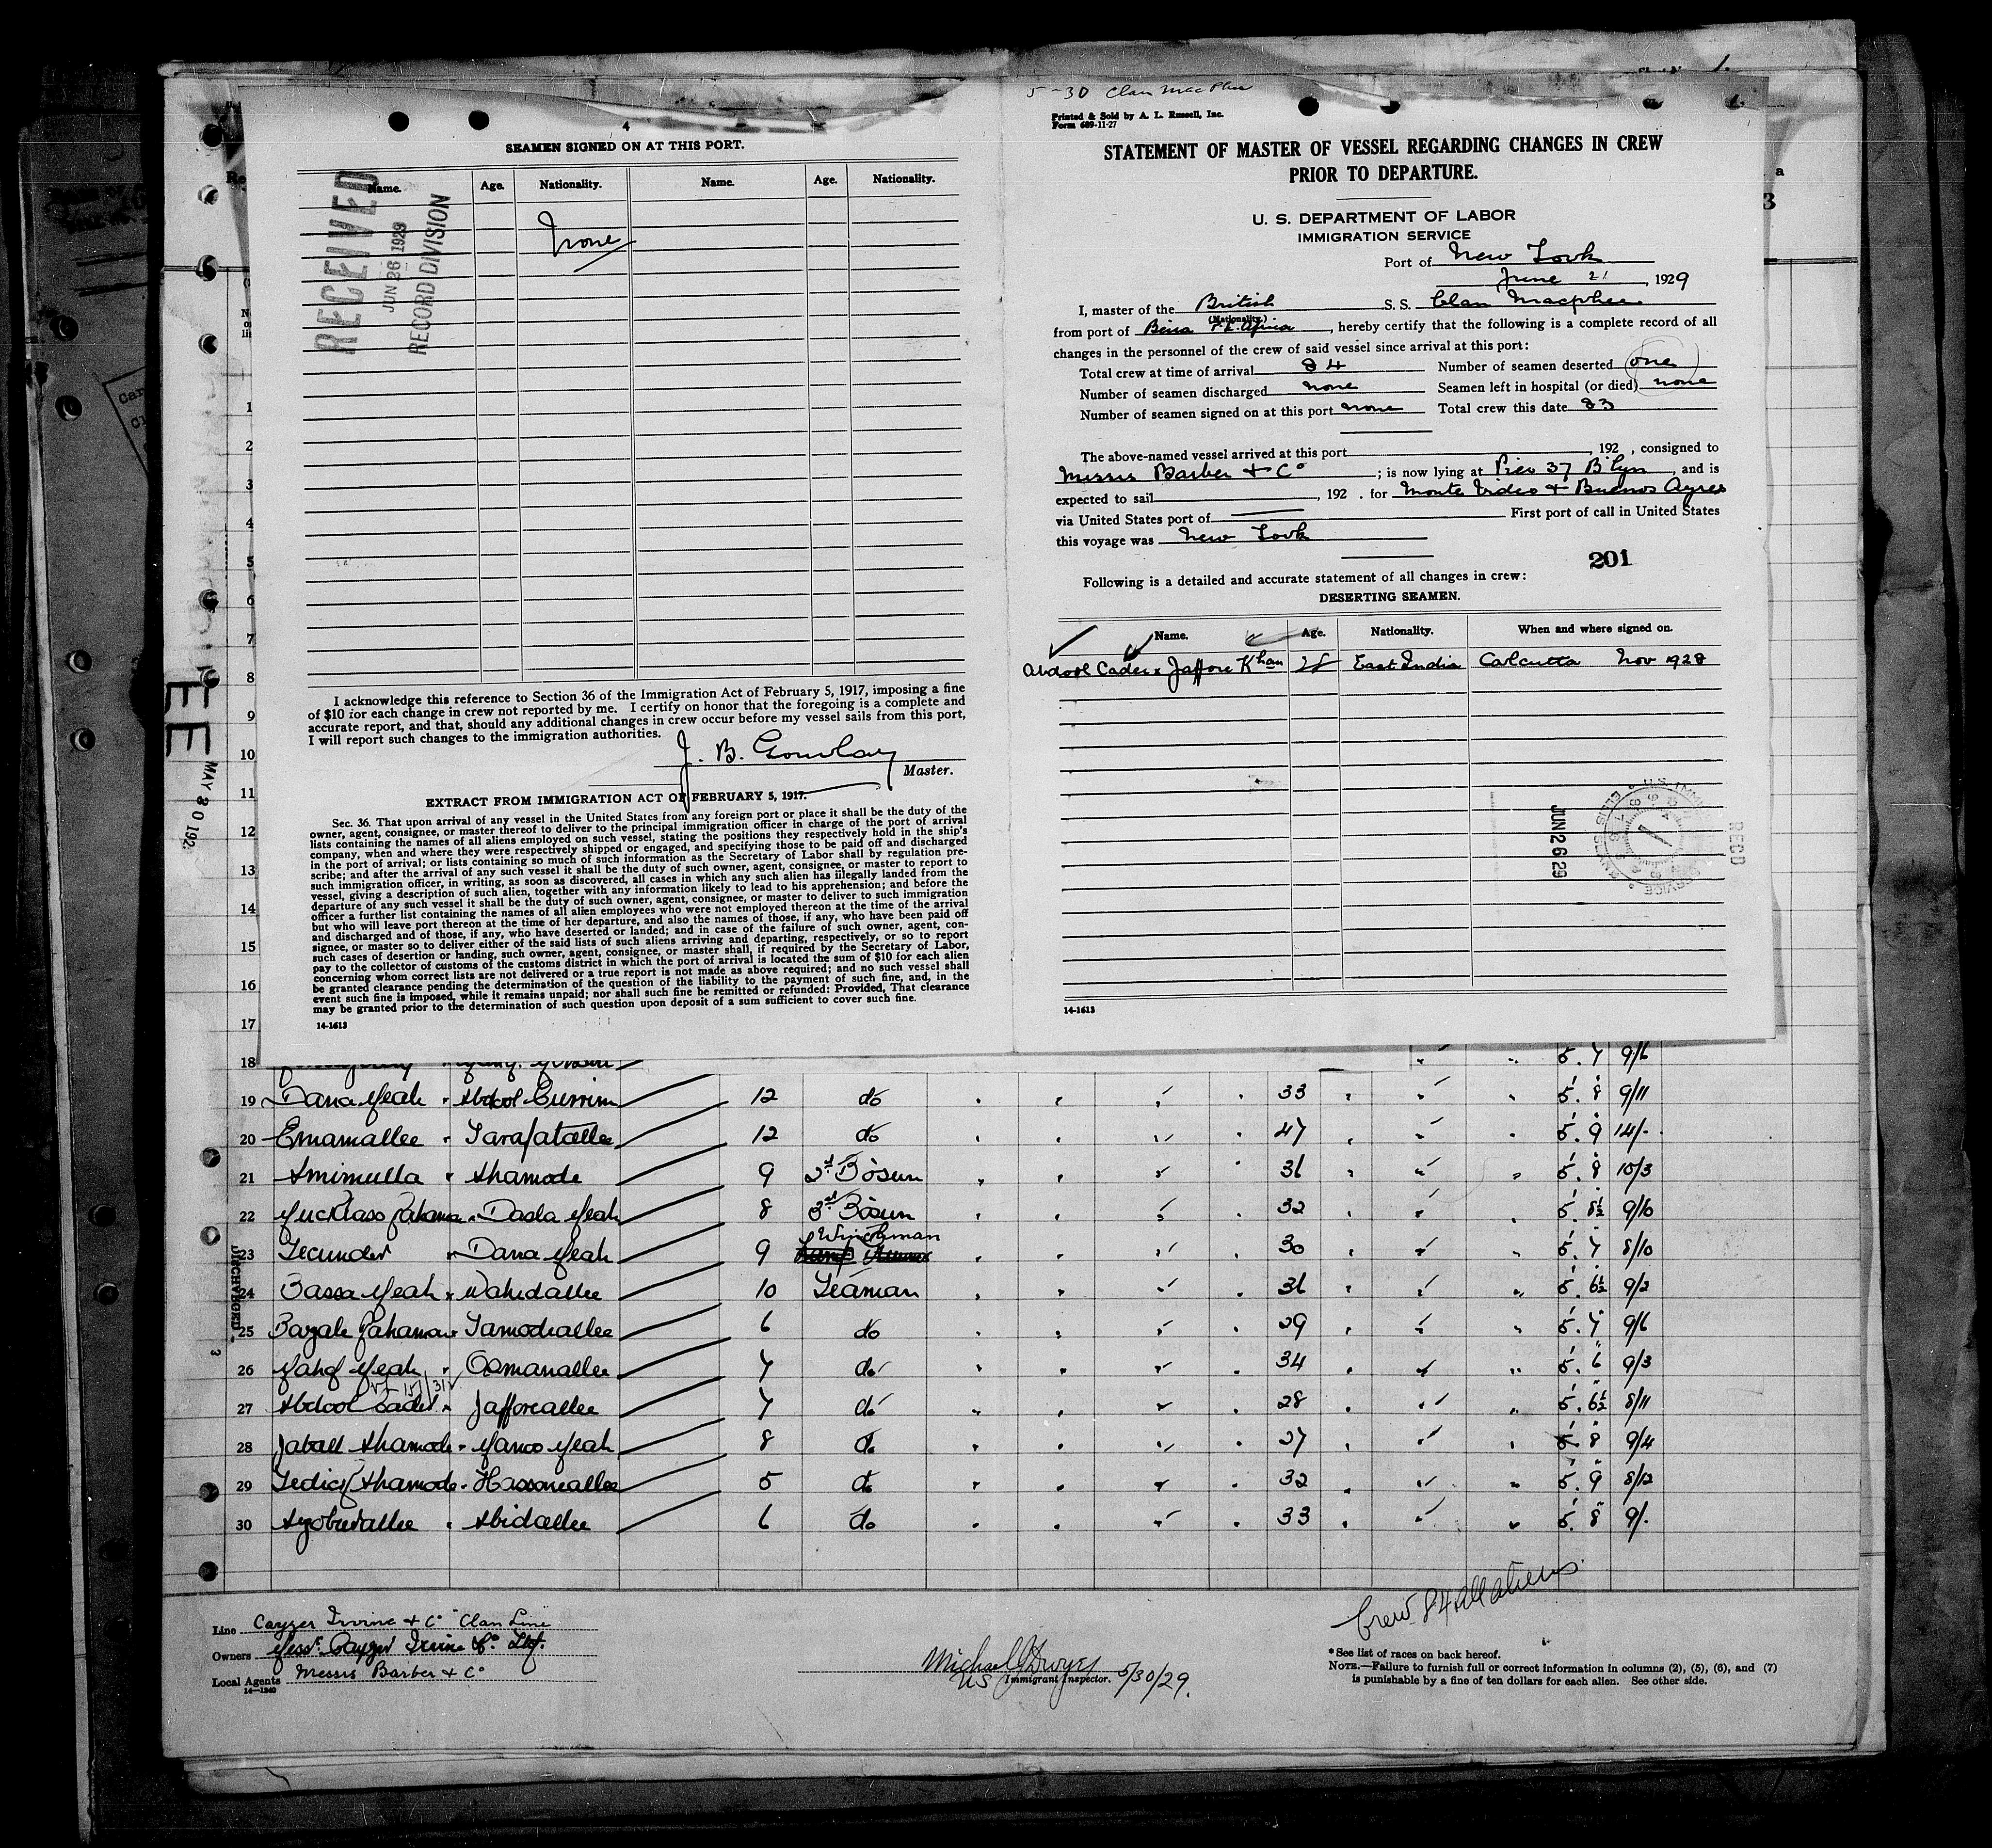 4
SEAMEN SIGNED ON AT THIS PORT.
Name. Age. Nationality. Name. Age. Nationality.
None
RECEIVED
JUN 26 1929
RECORD DIVISION
I acknowledge this reference to Section 36 of the Immigration Act of February 5, 1917, imposing a fine
of $10 for each change in crew not reported by me. I certify on honor that the foregoing is a complete and
accurate report, and that, should any additional changes in crew occur before my vessel sails from this port,
I will report such changes to the immigration authorities.
J. B. Gourlay
Master.
EXTRACT FROM IMMIGRATION ACT OF FEBRUARY 5, 1917.
Sec. 36. That upon arrival of any vessel in the United States from any foreign port or place it shall be the duty of the
owner, agent, consignee, or master thereof to deliver to the principal immigration officer in charge of the port of arrival
lists containing the names of all aliens employed on such vessel, stating the positions they respectively hold in the ship's
company, when and where they were respectively shipped or engaged, and specifying those to be paid off and discharged
in the port of arrival; or lists containing so much of such information as the Secretary of Labor shall by regulation pre-
scribe; and after the arrival of any such vessel it shall be the duty of such owner, agent, consignee, or master to report to
such immigration officer, in writing, as soon as discovered, all cases in which any such alien has illegally landed from the
vessel, giving a description of such alien, together with any information likely to lead to his apprehension; and before the
departure of any such vessel it shall be the duty of such owner, agent, consignee, or master to deliver to such immigration
officer a further list containing the names of all alien employees who were not employed thereon at the time of the arrival
but who will leave port thereon at the time of her departure, and also the names of those, if any, who have been paid off
and discharged and of those, if any, who have deserted or landed; and in case of the failure of such owner, agent, con-
signee, or master so to deliver either of the said lists of such aliens arriving and departing, respectively, or so to report
such cases of desertion or landing, such owner, agent, consignee, or master shall, if required by the Secretary of Labor,
pay to the collector of customs of the customs district in which the port of arrival is located the sum of $10 for each alien
concerning whom correct lists are not delivered or a true report is not made as above required; and no such vessel shall
be granted clearance pending the determination of the question of the liability to the payment of such fine, and, in the
event such fine is imposed, while it remains unpaid; nor shall such fine be remitted or refunded: Provided, That clearance
may be granted prior to the determination of such question upon deposit of a sum sufficient to cover such fine.
14-1613
5-30 Clan MacPhee
Printed & Sold by A. L. Russell, Inc.
Form 689-11-27
STATEMENT OF MASTER OF VESSEL REGARDING CHANGES IN CREW
PRIOR TO DEPARTURE.
U. S. DEPARTMENT OF LABOR
IMMIGRATION SERVICE
Port of New York
June 21, 1929
I, master of the British S. S. Clan Macphee
(Nationality.)
from port of Beira P. E. Africa, hereby certify that the following is a complete record of all
changes in the personnel of the crew of said vessel since arrival at this port:
Total crew at time of arrival 84 Number of seamen deserted one
Number of seamen discharged none Seamen left in hospital (or died) none
Number of seamen signed on at this port none Total crew this date 83
The above-named vessel arrived at this port , 192 , consigned to
Messrs Barber & Co ; is now lying at Pier 37 B'lyn, and is
expected to sail , 192 . for Monte Video & Buenos Ayres
via United States port of First port of call in United States
this voyage was New York
201
Following is a detailed and accurate statement of all changes in crew:
DESERTING SEAMEN.
Name. Age. Nationality. When and where signed on.
Abdool Cader Jaffore Khan 28 East India Calcutta Nov 1928
JUN 26 29
RECD
14-1613
MAY 30 192
1
2
3
4
5
6
7
8
9
10
11
12
13
14
15
16
17
18 5.7 9/6
19 Dana Meah Abdool Currim 12 do 33 5.8 9/11
20 Emamallee Sarafatallee 12 do 47 5.9 14/-
21 Amimulla Ahamode 9 2nd Bosun 36 5.8 10/3
22 Dasla Meah 8 3rd Bosun 32 5.8½ 9/10
23 Secunder Dana Meah 9 Winchman 30 5.7 8/10
24 Bassa Meah Wahidallee 10 Seaman 36 5.6½ 9/2
25 Samodeallee 6 do 29 5.7 9/6
26 Osmanallee 7 do 34 5.6 9/3
27 Abdool Cader Jafforeallee 7 do 28 5.6½ 8/11
28 Ahamode 8 do 27 5.8 9/4
29 Ahamode Hassoneallee 5 do 32 5.9 8/12
30 Abidallee 6 do 33 5.8 9/-
Line Cayzer Irvine & Co "Clan Line"
Owners Messrs. Cayzer Irvine & Co. Ltd.
Local Agents Messrs Barber & Co
14-1240
Michael J Dwyer
US Immigrant Inspector. 5/30/29.
Crew 84 all aliens
* See list of races on back hereof.
NOTE.—Failure to furnish full or correct information in columns (2), (5), (6), and (7)
is punishable by a fine of ten dollars for each alien. See other side.